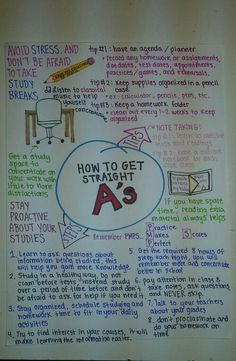 AVOID STRESS, AND
DON'T BE AFRAID
TO TAKE
STUDY
BREAKS
listen to classical
music to help
yourself
concentrate
tip #1: have an agenda / planner
* record any homework or assignments,
due dates, test dates, appointments,
practices/games, and rehearsals.
tip #2: Keep supplies organized in a pencil
case.
* ex: calculator, pencils, pens, etc.
tip #3: Keep a homework folder
* clean out every 1-2 weeks to keep
organized
TIPS
NOTE TAKING:
Get a study
space to
concentrate on
your work with
little to none
distractions
HOW TO GET
STRAIGHT
A's
If you have spare
time, reading over
material always helps
STAY
PROACTIVE
ABOUT YOUR
STUDIES
TIPS
Remember PMPS.
Practice
Makes
Perfect
Scores
1. Learn to ask questions about
information being studied, this
will help you gain more knowledge
2. Study in a healthy way, do not
cram before tests, instead study
over a period of time before and don't
be afraid to ask for help if you need it
3. Stay organized, schedule studying and
homework time to fit in your daily
activities
4. Try to find interest in your courses, it will
make learning the information easier.
5. Get the required 8 hours of
sleep each night, you will
remember more and concentrate
better in school
6. pay attention in class &
take notes, ask questions
and NEVER skip.
7. Talk to your teachers
about your grades
8. Don't procrastinate and
do your homework on
time